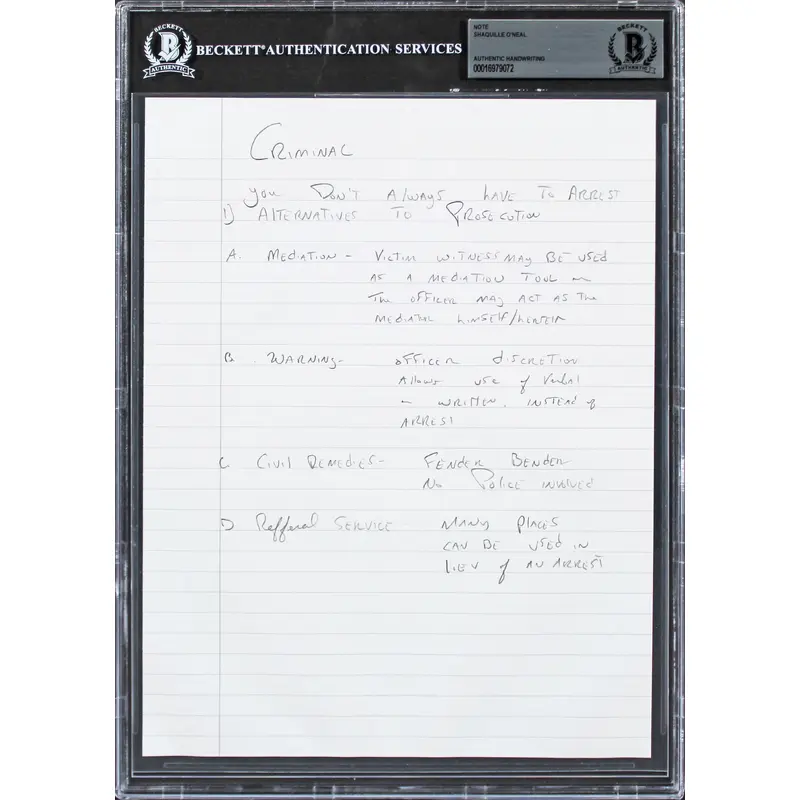 BECKETT
B
AUTHENTIC
BECKETT® AUTHENTICATION SERVICES
NOTE
SHAQUILLE O'NEAL
AUTHENTIC HANDWRITING
00016979072
BECKETT
B
AUTHENTIC
CRIMINAL
you DON'T Always have To ARREST
1) ALTERNATIVES TO PROSECUTION
A. MEDIATION - VICTIM WITNESS MAY BE USED
AS A MEDIATION TOOL or
The OFFICER MAY ACT AS The
MEDIATOR himSELF/herself
B. WARNING- OFFICER discRETION
Allows use of Verbal
or WRITTEN. INSTEAD of
ARREST
C Civil REMEDIES- FENDER BENDER
No Police INVOLVED
D Refferal SERVICE MANY PlACES
CAN BE USED IN
liEU of AN ARREST